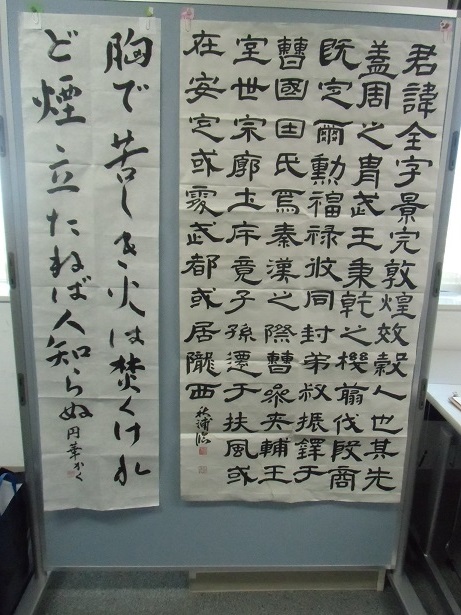 君諱全字景完敦煌效穀人也其先
蓋周之胄武王秉乾之機翦伐殷商
既定爾勲福祿攸同封弟叔振鐸于
曹國因氏焉秦漢之際曹參夾輔王
室世宗廓土斥竟子孫遷于扶風或
在安定或處武都或居隴西
胸で苦しき火は焚くけれ
ど煙立たねば人知らぬ 円華かく